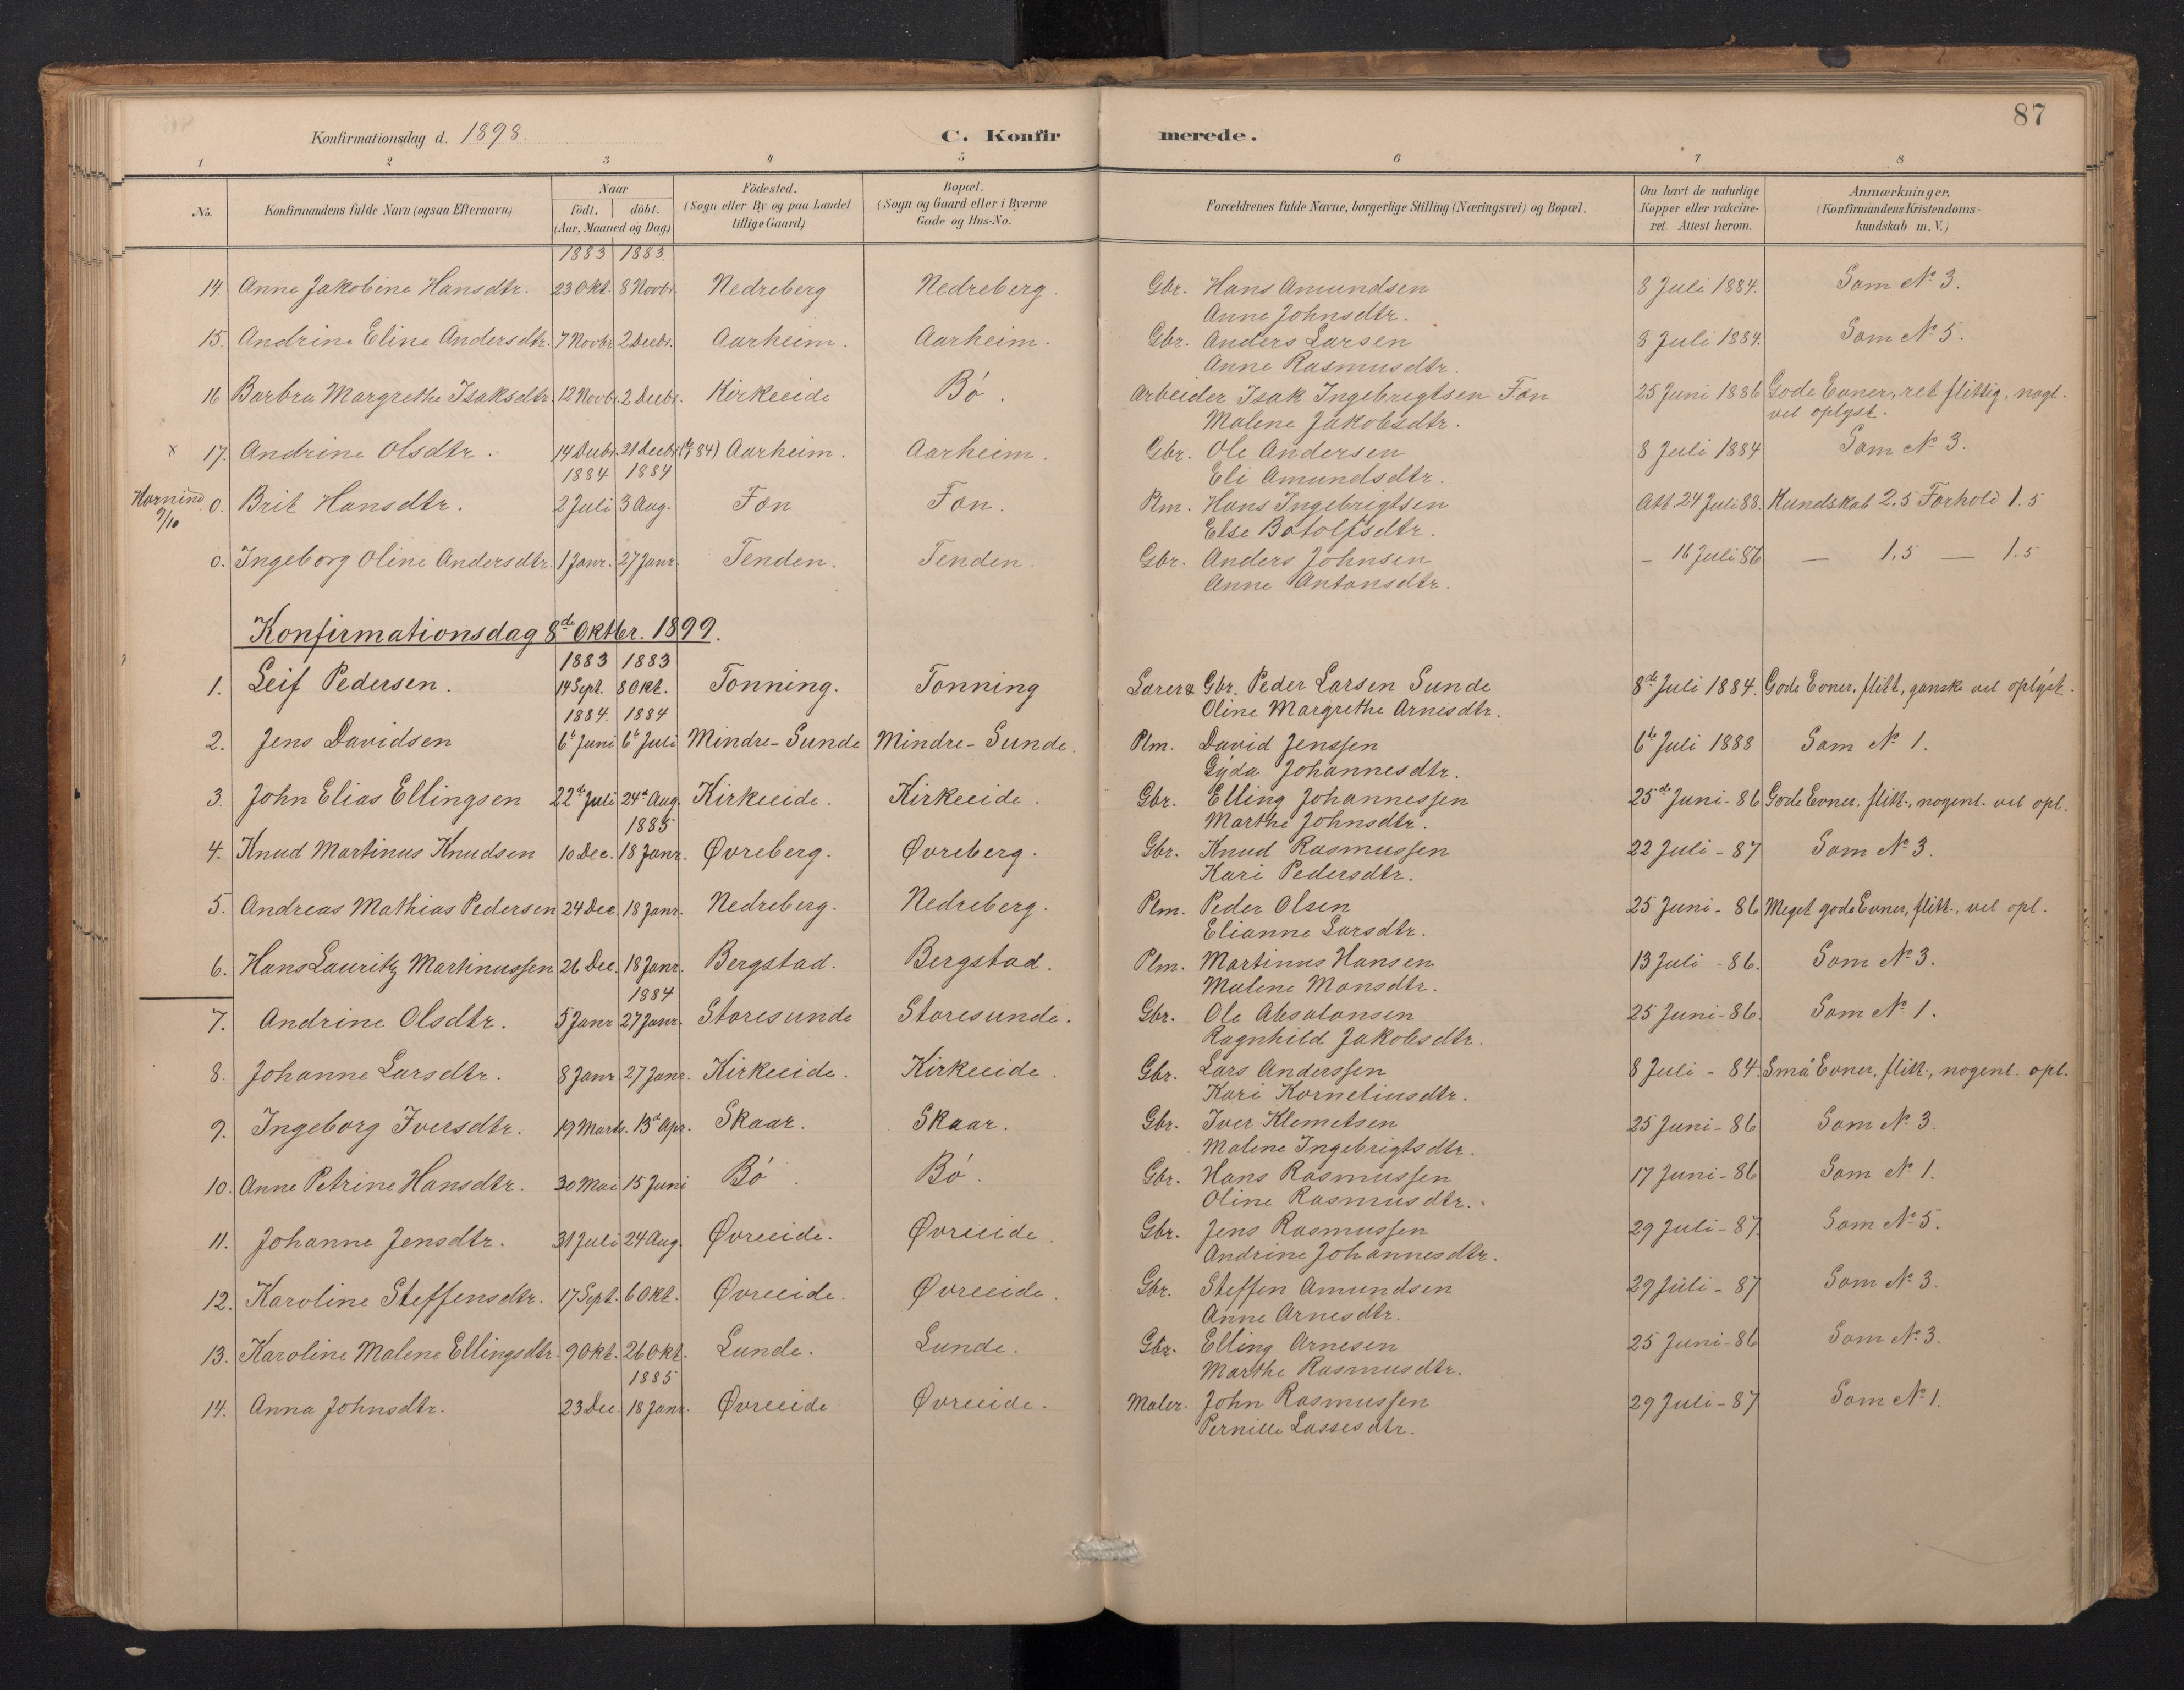 87
Konfirmationsdag d. 1898.
C. Konfirmerede.
1 2 3 4 5 6 7 8
No. Konfirmandens fulde Navn (ogsaa Efternavn) Naar født. døbt. (Aar, Maaned og Dag) Födested. (Sogn eller By og paa Landet tillige Gaard) Bopæl. (Sogn og Gaard eller i Byerne Gade og Hus-No. Forældrenes fulde Navne, borgerlige Stilling (Næringsvei) og Bopæl. Om havt de naturlige Kopper eller vakcineret. Attest herom. Anmærkninger. (Konfirmandens Kristendomskundskab m. V.)
1883 1883
14. Anne Jakobine Hansdtr. 23 Okt. 8 Novbr. Nedreberg Nedreberg. Gbr. Hans Amundsen 8 Juli 1884. Som No 3.
Anne Johnsdtr.
15. Andrine Eline Andersdtr. 7 Novbr 2 Decbr. Aarheim. Aarheim. Gbr. Anders Larsen 8 Juli 1884. Som No 5.
Anne Rasmusdtr.
16 Barbra Margrethe Isaksdtr. 12 Novbr. 2 Decbr. Kirkeeide Bö. Arbeider Isak Ingebrigtsen Føn 25 Juni 1886 Gode Evner, ret flittig, nogl.
Malene Jakobsdtr. vel oplyst.
x 17. Andrine Olsdtr. 14 Decbr. 21 Decbr. Aarheim. Aarheim. Gbr. Ole Andersen 8 Juli 1884 Som No 3.
1884 1884 Eli Amundsdtr.
Hornind. 9/10 0. Brit Hansdtr. 2 Juli 3 Aug. Føn Føn. Rm. Hans Ingebrigtsen Att. 24 Juli 88. Kundskab 2.5 Forhold 1.5
Else Botolfsdtr.
0. Ingeborg Oline Andersdtr. 1 Janr. 27 Janr. Tenden. Tenden. Gbr. Anders Johnsen – 16 Juli 86 — 1.5 — 1.5
Anne Antonsdtr.
Konfirmationsdag 8de Oktbr. 1899.
1883 1883
1. Leif Pedersen. 14 Sept. 8 Okt. Tonning. Tonning Lærer & Gbr. Peder Larsen Sunde 8de Juli 1884. Gode Evner, flitt, ganske vel oplyst.
1884. 1884 Oline Margrethe Arnesdtr.
2. Jens Davidsen 6te Juni 6te Juli Mindre-Sunde Mindre-Sunde. Plm. David Jenssen 6te Juli 1888 Som No 1.
Gyda Johannesdtr.
3. John Elias Ellingsen 22de Juli 24de Aug. Kirkeeide. Kirkeeide. Gbr. Elling Johannessen 25de Juni - 86 Gode Evner. flitt., nogenl. vel opl.
1885 Marthe Johnsdtr.
4. Knud Martinus Knudsen 10 Dec. 18 Janr. Øvreberg. Øvreberg. Gbr. Knud Rasmussen 22 Juli - 87 Som No 3.
Kari Pedersdtr.
5. Andreas Mathias Pedersen 24 Dec. 18 Janr. Nedreberg. Nedreberg. Plm. Peder Olsen 25 Juni - 86 Meget gode Evner, flitt., vel opl.
Elianne Larsdtr.
6. Hans Lauritz Martinussen 26 Dec. 18 Janr. Bergstad. Bergstad. Plm. Martinus Hansen 13 Juli - 86. Som No 3.
1884 Malene Monsdtr.
7. Andrine Olsdtr. 5 Janr 27 Janr. Storesunde Storesunde. Gbr. Ole Absalonsen 25 Juni - 86. Som No 1.
Ragnhild Jakobsdtr.
8. Johanne Larsdtr. 8 Janr 27 Janr. Kirkeeide. Kirkeeide. Gbr. Lars Anderssen 8 Juli - 84. Små Evner, flitt., nogenl. opl.
Kari Korneliusdtr.
9. Ingeborg Iversdtr. 19 Marts. 13de Apr. Skaar. Skaar. Gbr. Iver Klemetsen 25 Juni - 86 Som No 3.
Malene Ingebrigtsdtr.
10. Anne Petrine Hansdtr. 30 Mai 15 Juni Bö. Bö. Gbr. Hans Rasmussen 17 Juni - 86 Som No 1.
Oline Rasmusdtr.
11. Johanne Jensdtr. 31 Juli 24 Aug. Øvreeide. Øvreeide. Gbr. Jens Rasmussen 29 Juli - 87. Som No 5.
Andrine Johannesdtr.
12. Karoline Steffensdtr. 17 Sept. 6 Okt. Øvreeide. Øvreeide. Gbr. Steffen Amundsen 29 Juli - 87 Som No 3.
Anne Arnesdtr.
13. Karoline Malene Ellingsdtr. 9 Okt. 26 Okt. Lunde. Lunde. Gbr. Elling Arnesen 25 Juni - 86 Som No 3.
1885 Marthe Rasmusdtr.
14. Anna Johnsdtr. 23 Dec. 18 Janr. Øvreeide Øvreeide. Maler. John Rasmussen 29 Juli - 87 Som No 1.
Pernille Lassesdtr.